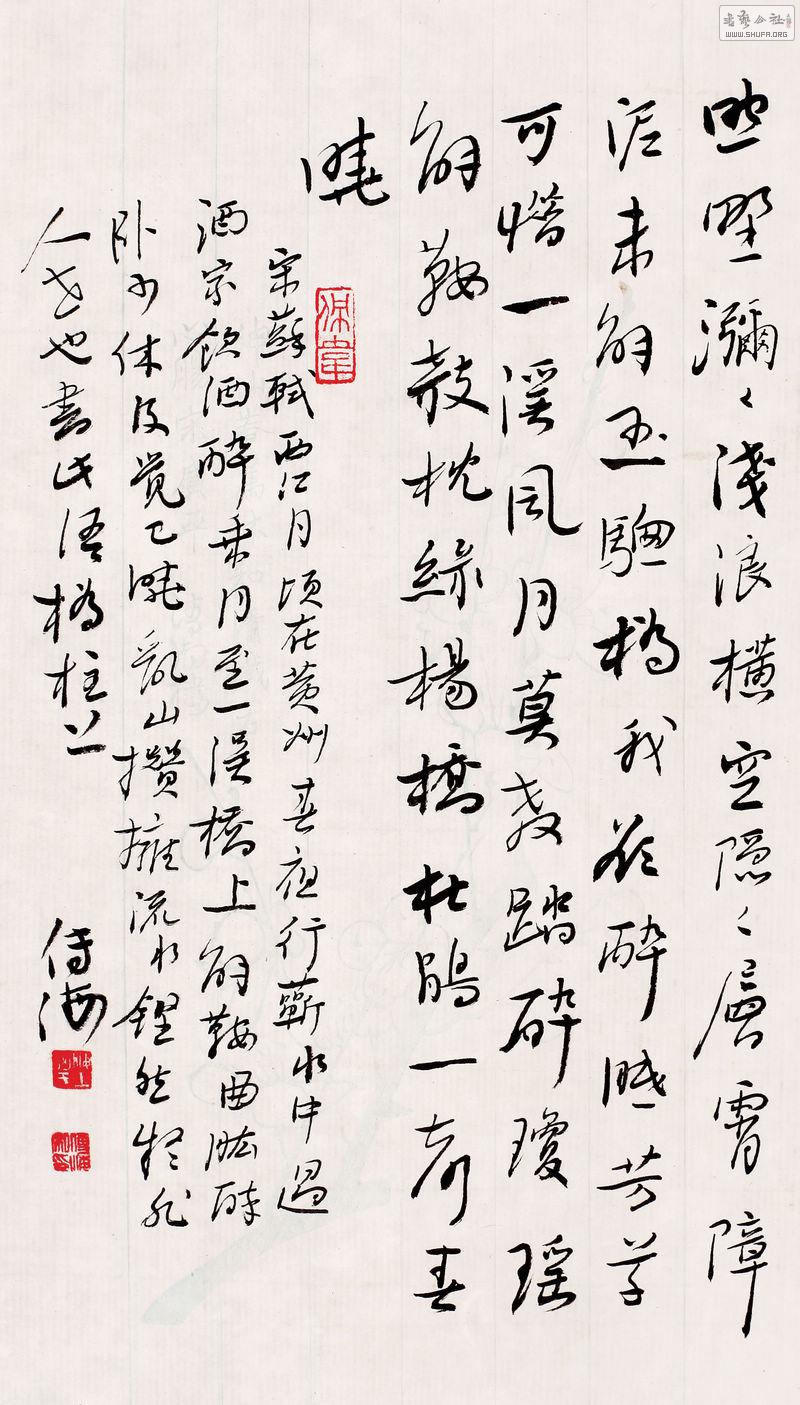 照野瀰〻淺浪橫空隱〻層霄障
泥未解玉驄橋我欲醉眠芳草
可惜一溪風月莫教踏碎瓊瑤
解鞍攲枕綠楊橋杜鵑一聲春
曉
宋蘇軾西江月頃在黃州春夜行蘄水中過
酒家飲酒醉乘月至一溪橋上解鞍曲肱醉
臥少休及覺已曉亂山攢擁流水鏗然疑非
人世也書此語橋柱上
書藝公社
WWW.SHUFA.ORG